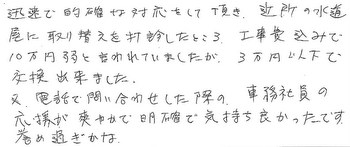 迅速で的確な対応をして頂き、近所の水道
屋に取り替えを打診したところ、工事費込みで
10万円弱と言われていましたが、3万円以下で
交換出来ました。
又、電話で問い合わせした際の、事務社員の
応接が爽やかで明確で気持ち良かったです。
誉め過ぎかな。